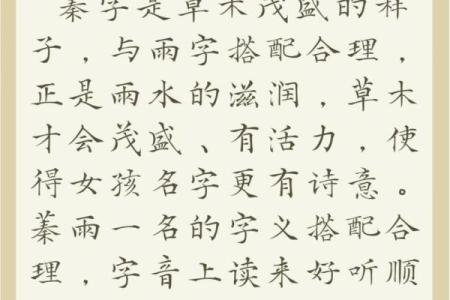 蓁字是草木茂盛的样
子，与雨字搭配合理，
正是雨水的滋润，草木
才会茂盛、有活力，使
得女孩名字更有诗意。
蓁雨一名的字义搭配合
理，字音上读来好听顺